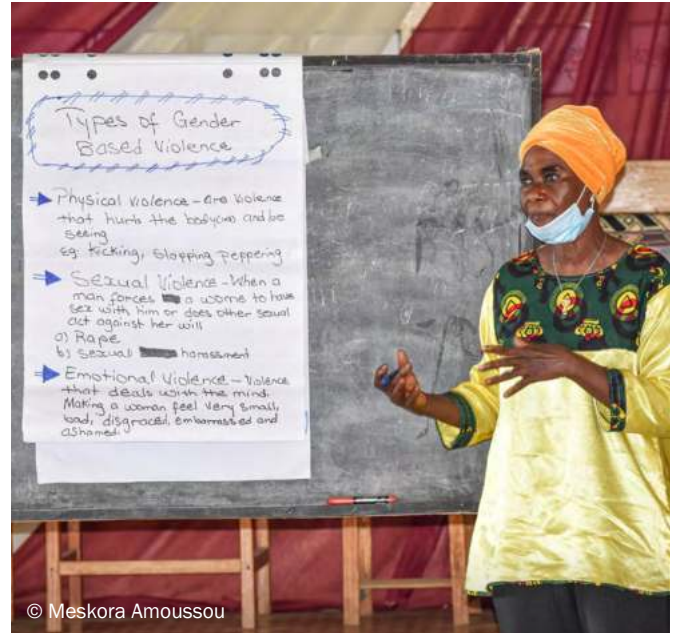 Types of Gender
Based Violence
Physical violence - Are violence
that hurts the body and be
seeing
eg. Kicking, Slapping peppering
Sexual Violence - When a
man forces a wome to have
sex with him or does other sexual
act against her will
a) Rape
b) Sexual harassment
Emotional Violence - Violence
that deals with the mind.
Making a woman feel very small,
bad, disgraced, embarrassed and
ashamed.
© Meskora Amoussou